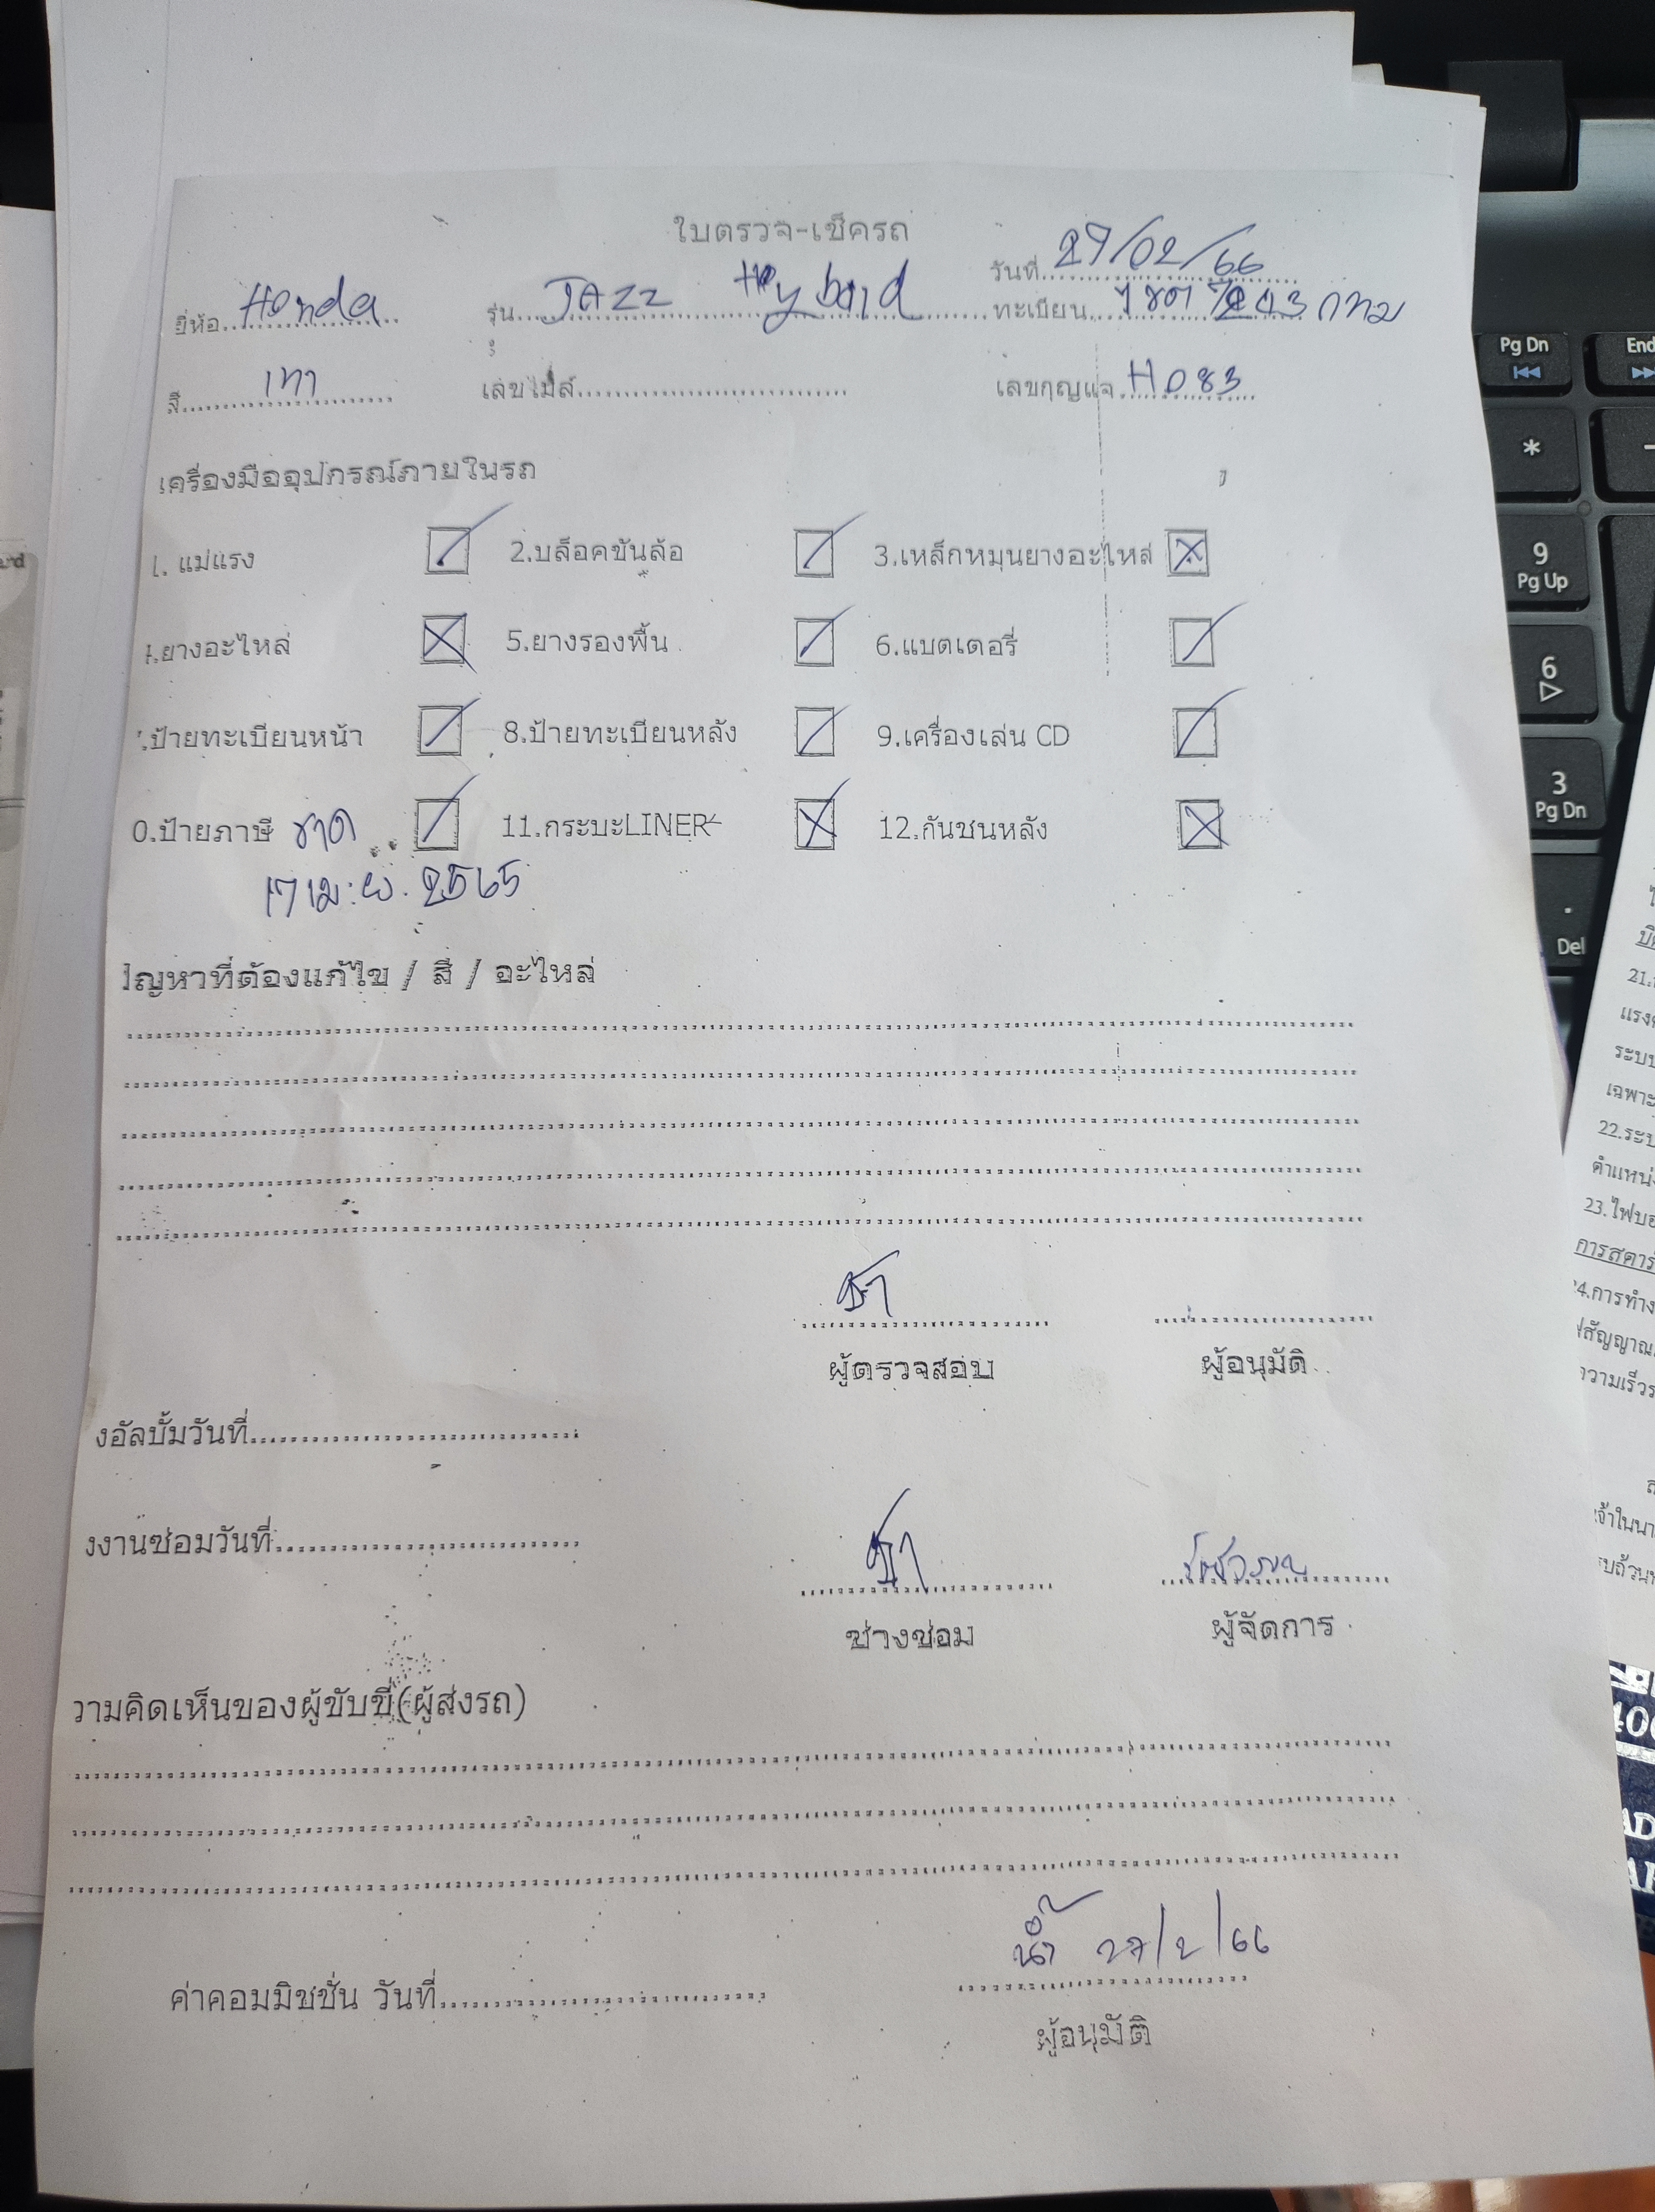 ใบตรวจ-เช็ครถ
วันที่ 27/02/66
ยี่ห้อ Honda รุ่น JAZZ Hybrid ทะเบียน กทม
สี เทา เลขไมล์ เลขกุญแจ HD83
เครื่องมืออุปกรณ์ภายในรถ
1. แม่แรง 2.บล็อคขันล้อ 3.เหล็กหมุนยางอะไหล่
.ยางอะไหล่ 5.ยางรองพื้น 6.แบตเตอรี่
.ป้ายทะเบียนหน้า 8.ป้ายทะเบียนหลัง 9.เครื่องเล่น CD
0.ป้ายภาษี ขาด 11.กระบะLINER 12.กันชนหลัง
17 เม.ย. 2565
ปัญหาที่ต้องแก้ไข / สี / อะไหล่
ผู้ตรวจสอบ ผู้อนุมัติ
งอัลบั้มวันที่
งงานซ่อมวันที่
ช่างซ่อม ผู้จัดการ
วามคิดเห็นของผู้ขับขี่(ผู้ส่งรถ)
27/2/66
ค่าคอมมิชชั่น วันที่
ผู้อนุมัติ
Pg Dn
End
*
9
Pg Up
6
3
Pg Dn
.
Del
21.
22.ระบ
ตำแหน่
23.ไฟบอ
การสตาร์
4.การทำง
สัญญาณ
ความเร็วร